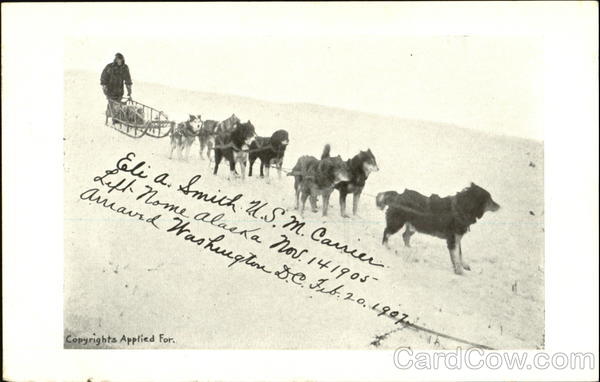 Eli A. Smith. U.S.M. Carrier
Left Nome Alaska Nov. 14 1905-
Arraivd Washington D.C. Feb. 20. 1907.
Copyrights Applied For.
CardCow.com